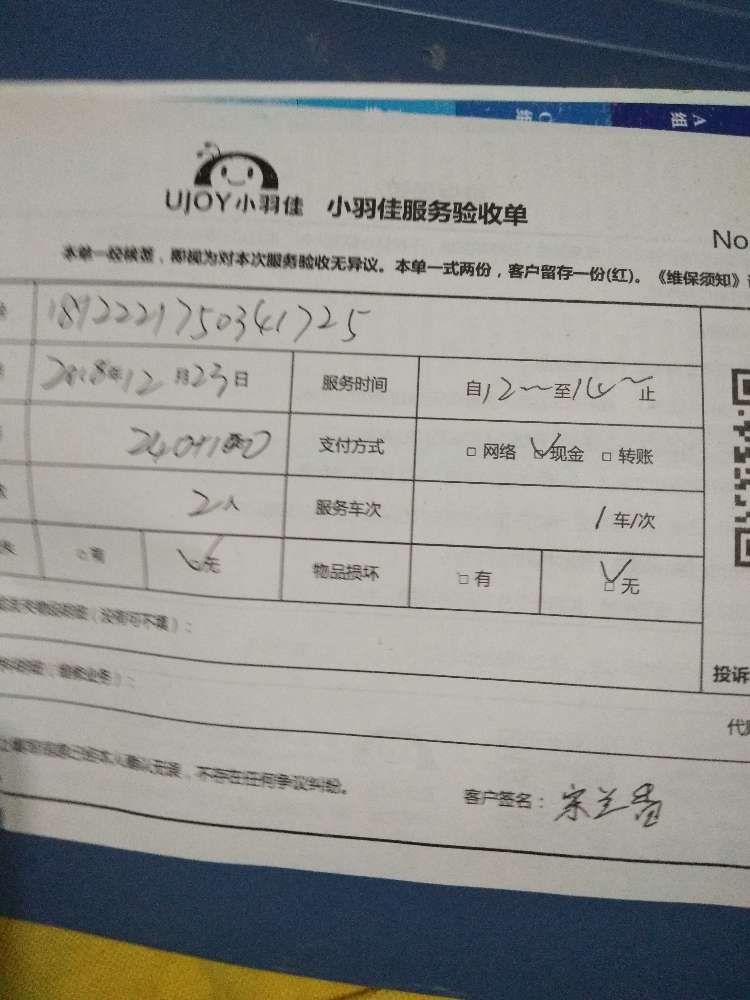 A组
UJOY小羽佳 小羽佳服务验收单
No
本单一经候签，即视为对本次服务验收无异议。本单一式两份，客户留存一份(红)。《维保须知》
1812221750341725
2018年12月23日 服务时间 自12~至16~止
支付方式 □ 网络 □现金 □ 转账
2人 服务车次 1车/次
□有 □无 物品损坏 □有 □无
（没有可不填）：
投诉
，不存在任何争议纠纷。
客户签名：宋兰香